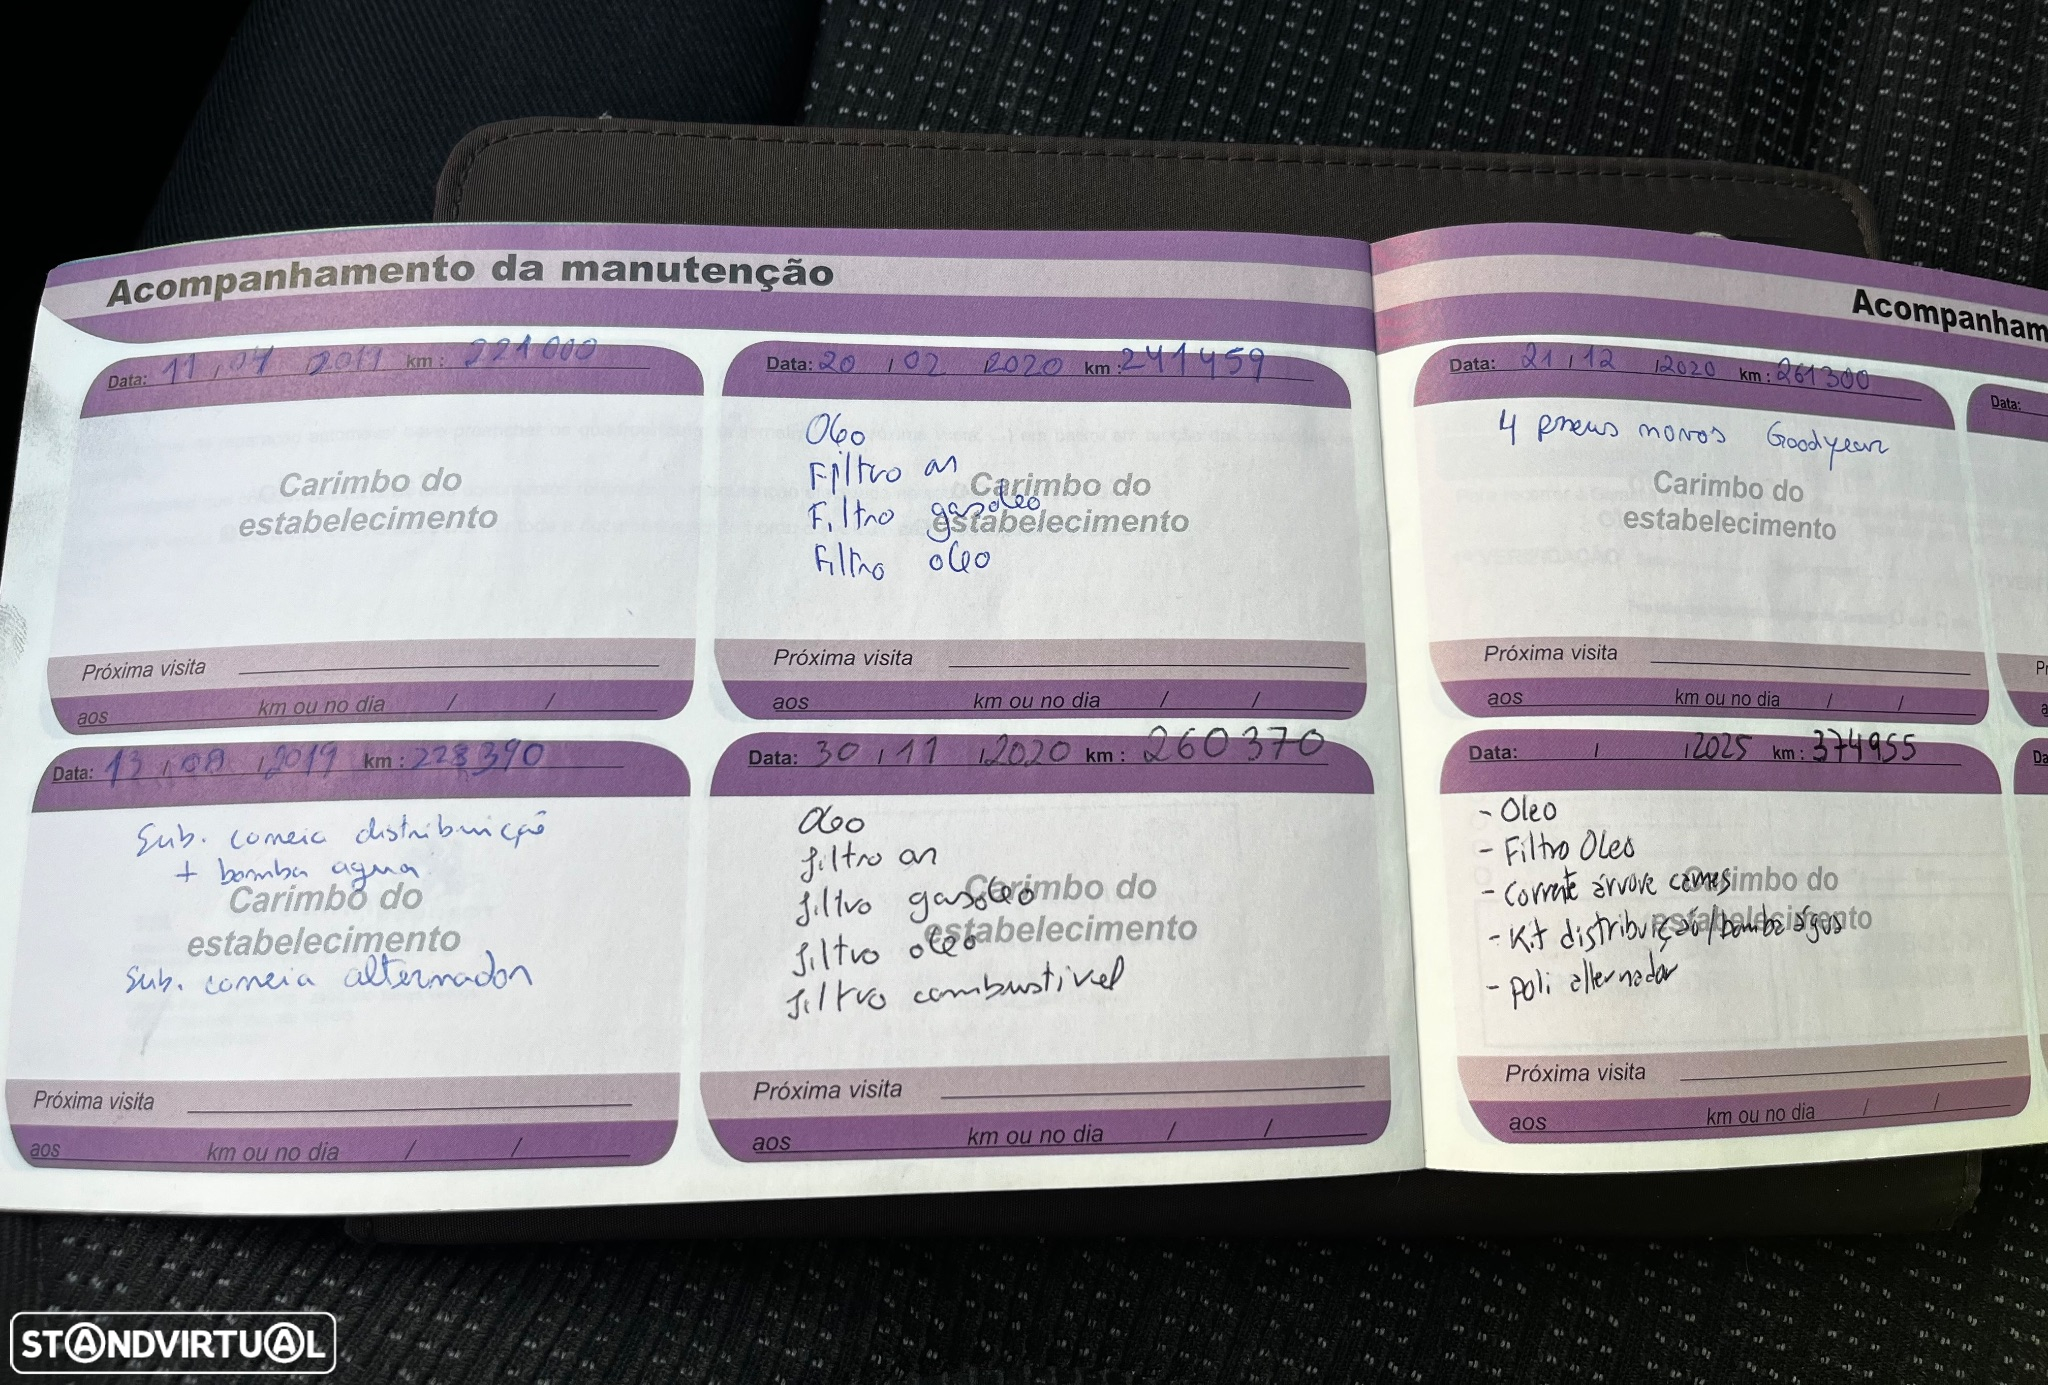 Acompanhamento da manutenção
Data: 11 / 07 / 2019 km : 221000
Carimbo do
estabelecimento
Próxima visita
aos km ou no dia / /
Data: 13 / 08 / 2019 km : 223390
Sub. correia distribuição
+ bomba agua
Carimbo do
estabelecimento
Sub. correia alternador
Próxima visita
aos km ou no dia / /
Data: 20 / 02 / 2020 km : 241459
Oleo
Filtro ar
Carimbo do
Filtro gasoleo
estabelecimento
Filtro oleo
Próxima visita
aos km ou no dia / /
Data: 30 / 11 / 2020 km : 260370
Oleo
filtro ar
Carimbo do
filtro gasoleo
estabelecimento
filtro oleo
filtro combustivel
Próxima visita
aos km ou no dia / /
Acompanham
Data: 21 / 12 / 2020 km : 261300
4 pneus novos Goodyear
Carimbo do
estabelecimento
Próxima visita
aos km ou no dia / /
Data: / / 2025 km : 374955
- Oleo
- Filtro Oleo
- Corrente árvore cames
Carimbo do
- Kit distribuição/bomba água
estabelecimento
- Poli alternador
Próxima visita
aos km ou no dia / /
Data:
Pr
a
Da
STANDVIRTUAL